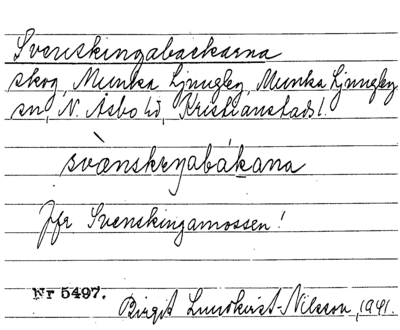 Svenskingabackarna
skog, Munka Ljungby, Munka Ljungby
sn, N. Åsbo hd, Kristianstads l.
svànskeŋabákana
Jfr Svenskingamossen!
Nr 5497.
Birgit Lundkvist-Nilsson, 1941.